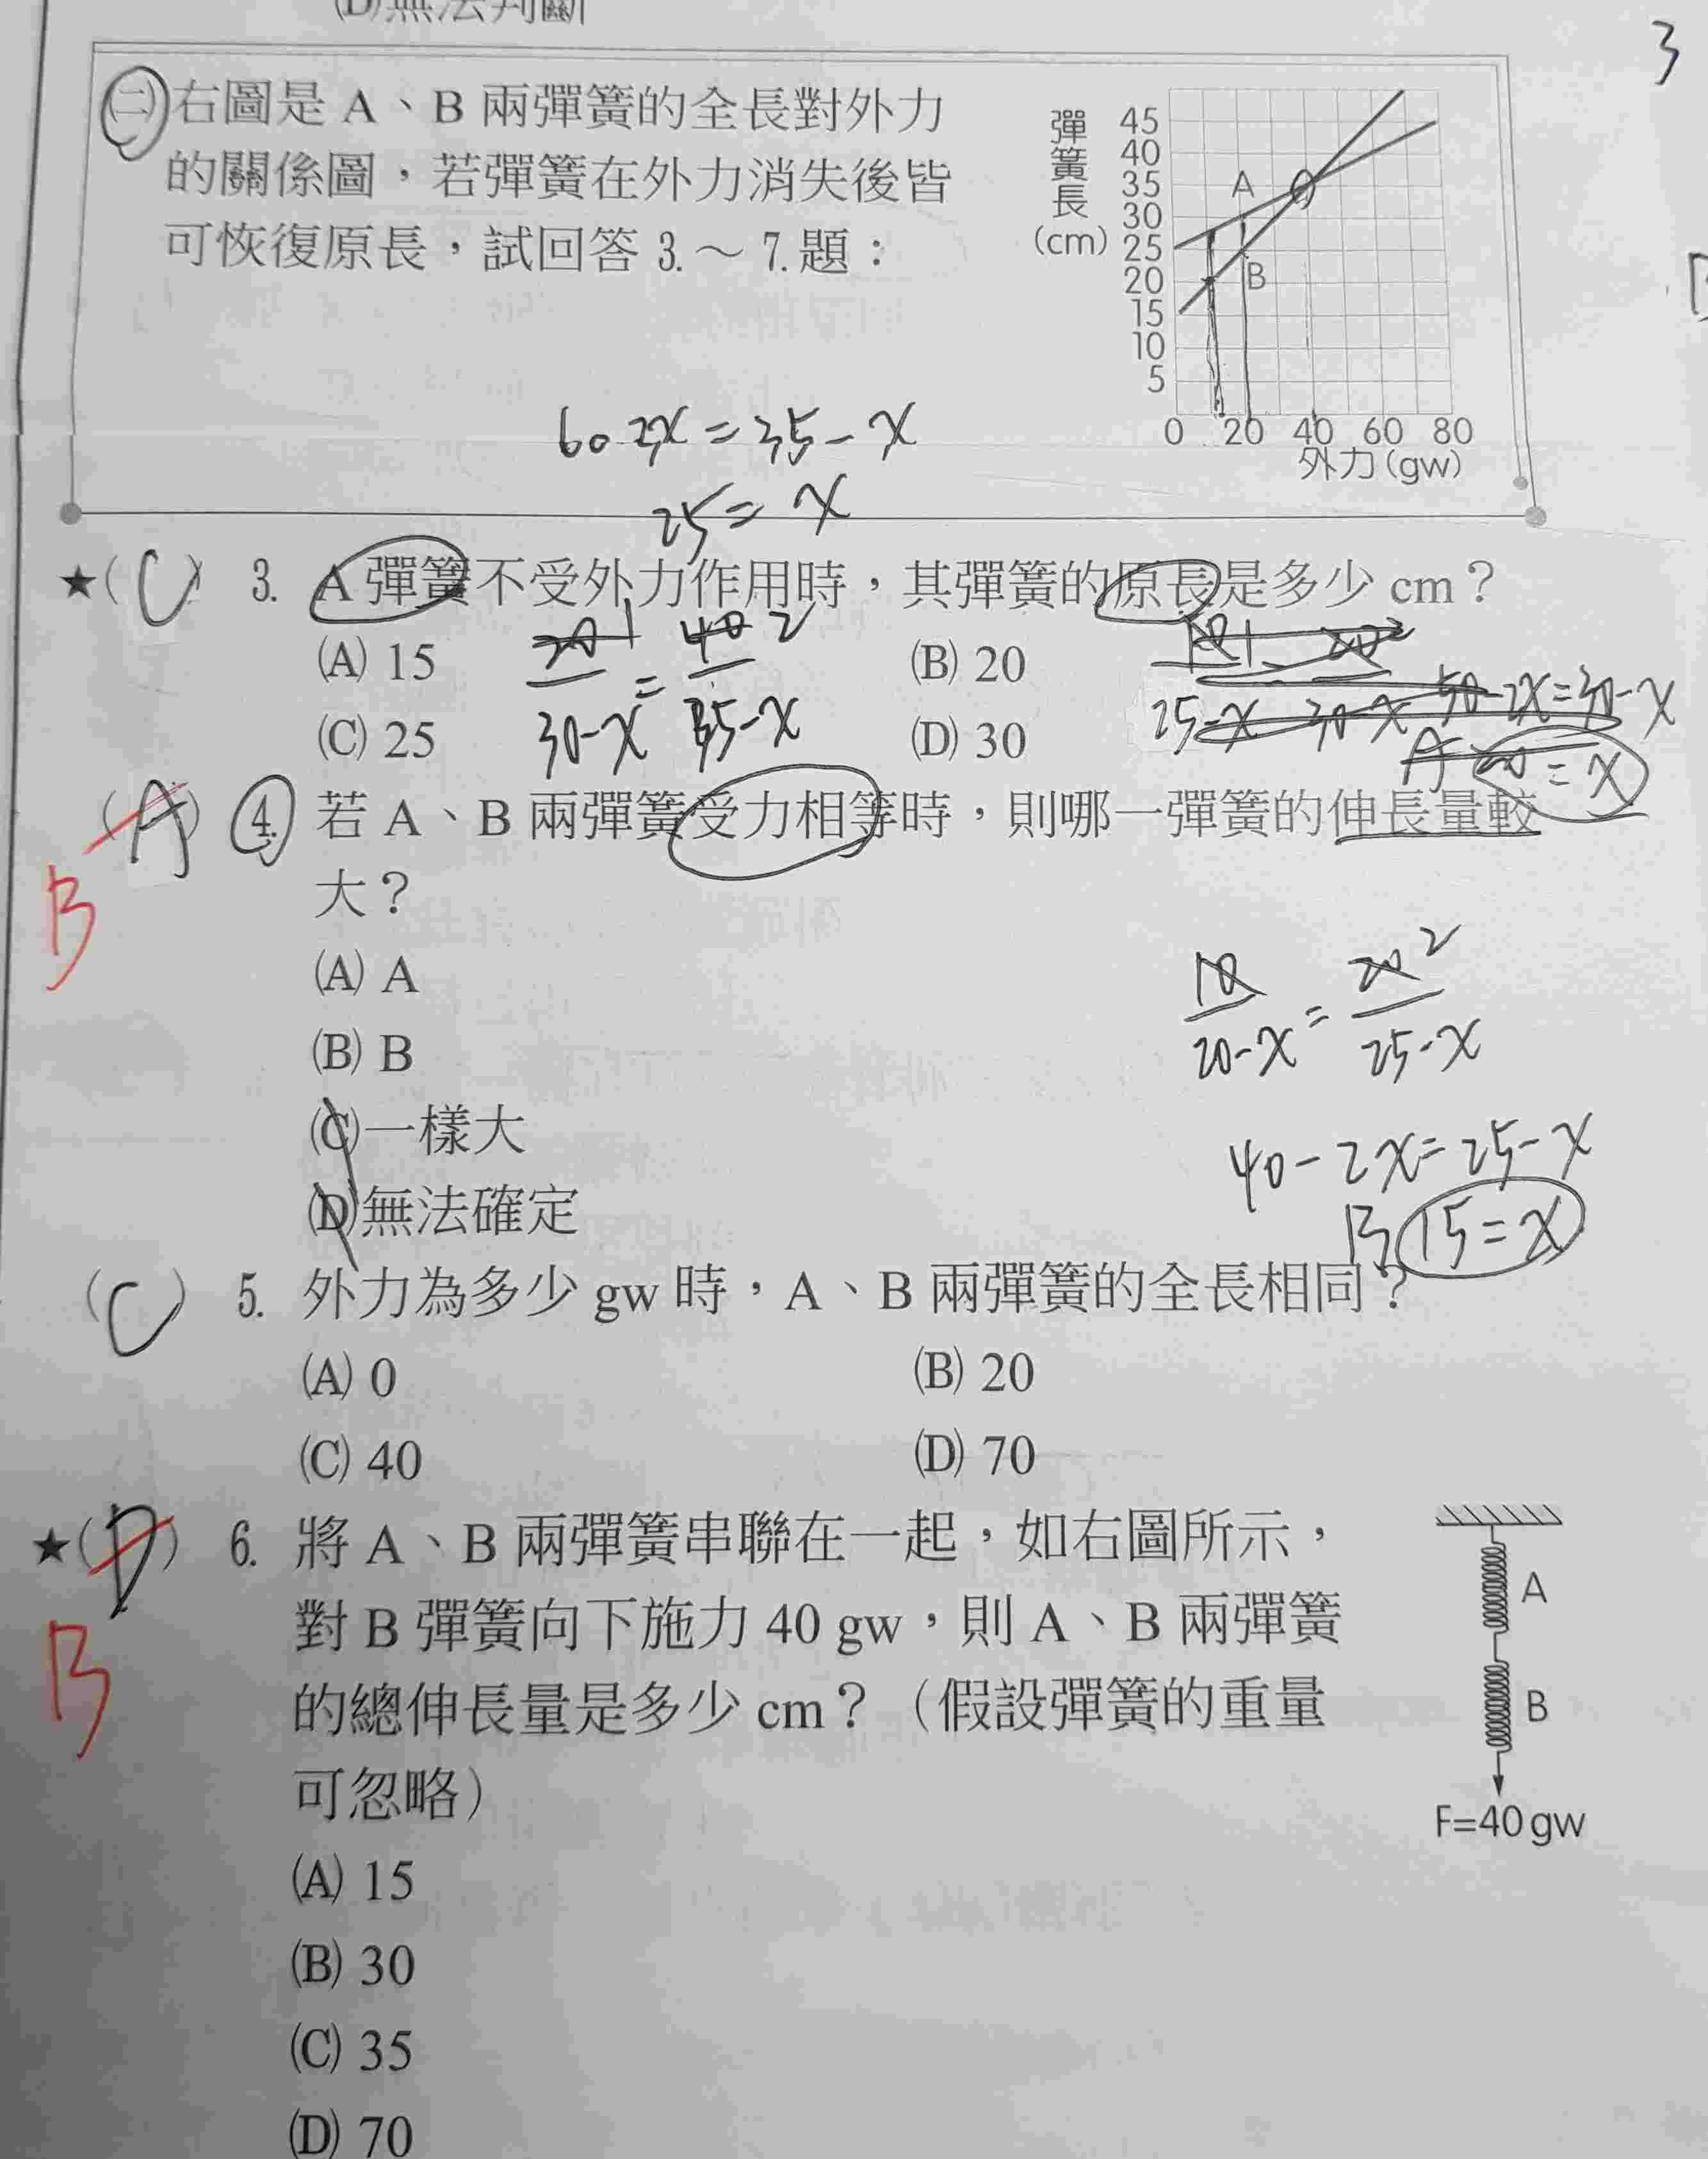 (D)無法判斷
3
(二)右圖是 A、B 兩彈簧的全長對外力
的關係圖，若彈簧在外力消失後皆
可恢復原長，試回答 3.～ 7.題：
彈簧長
(cm)
45
40
35
30
25
20
15
10
5
A
B
0 20 40 60 80
外力(gw)
60-2x=35-x
25=x
★(C) 3. A 彈簧不受外力作用時，其彈簧的原長是多少 cm？
(A) 15
(B) 20
(C) 25
(D) 30
20 1 = 40 2
30-x 35-x
25-x 30-x 50-2x=30-x
=x
(A) 4. 若 A、B 兩彈簧受力相等時，則哪一彈簧的伸長量較
大？
B
(A) A
(B) B
(C)一樣大
(D)無法確定
10 = 20 2
20-x 25-x
40-2x=25-x
B 15=x
(C) 5. 外力為多少 gw 時，A、B 兩彈簧的全長相同？
(A) 0
(B) 20
(C) 40
(D) 70
★(D) 6. 將 A、B 兩彈簧串聯在一起，如右圖所示，
對 B 彈簧向下施力 40 gw，則 A、B 兩彈簧
的總伸長量是多少 cm？（假設彈簧的重量
可忽略）
B
(A) 15
(B) 30
(C) 35
(D) 70
A
B
F=40 gw